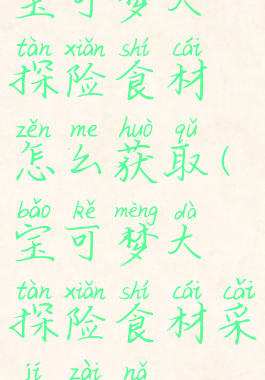 宝可梦大
tàn xiǎn shí cái
探险食材
zěn me huò qǔ
怎么获取(
bǎo kě mèng dà
宝可梦大
tàn xiǎn shí cái cǎi
探险食材采
jí zài nǎ